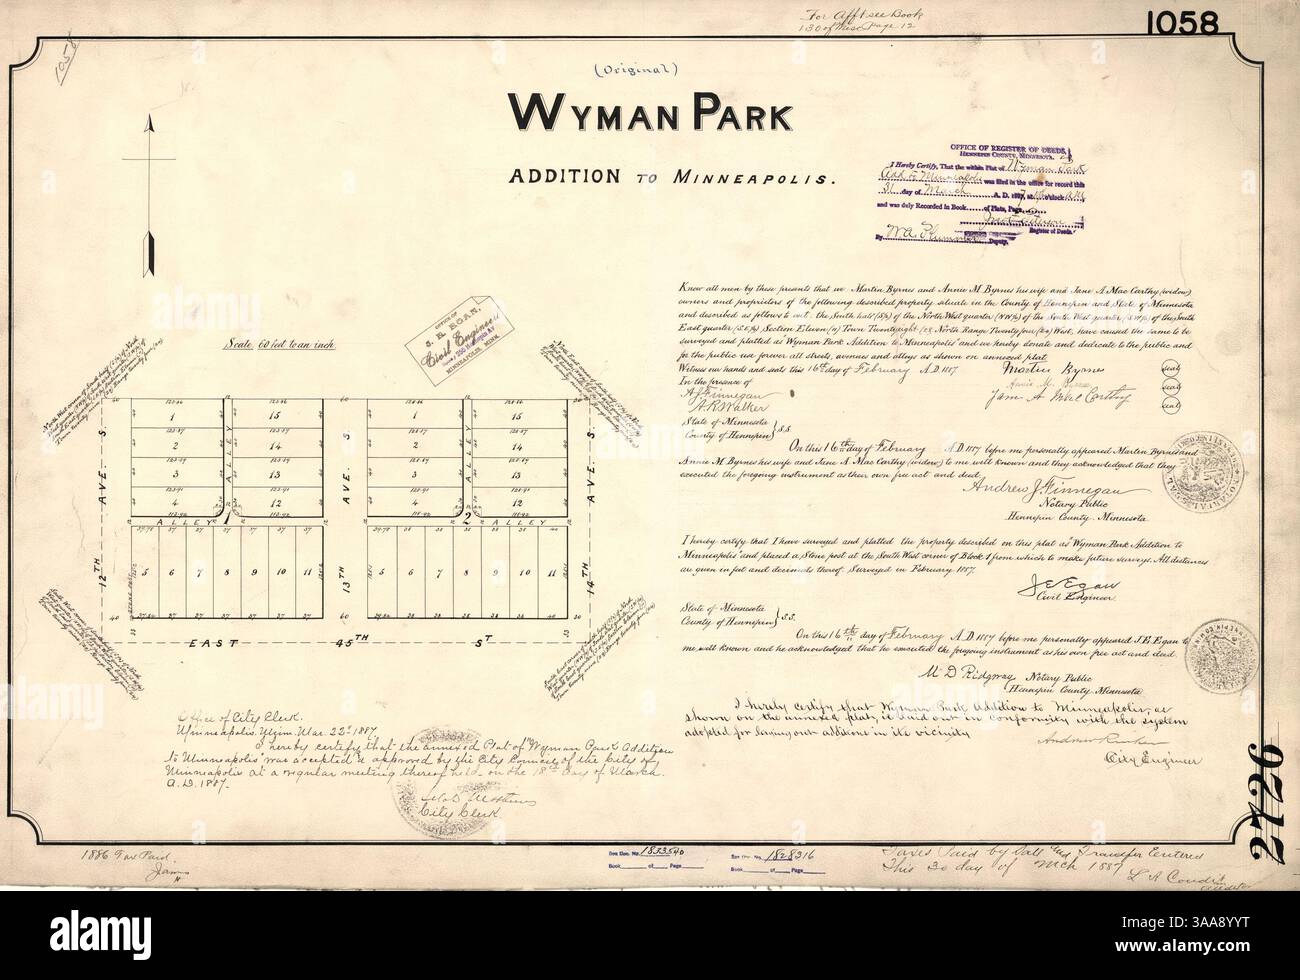 For Afft see Book
130 of Misc Page 12
1058
1058
(Original)
WYMAN PARK
ADDITION TO MINNEAPOLIS.
OFFICE OF REGISTER OF DEEDS,
HENNEPIN COUNTY, MINNESOTA.
I Hereby Certify, That the within Plat of Wyman Park
Add to Minneapolis was filed in the office for record this
31 day of March A. D. 1887, at o'clock A M
and was duly Recorded in Book of Plats, Page
Register of Deeds.
By Deputy.
Scale, 60 feet to an inch.
OFFICE OF
Civil Engineer
MINNEAPOLIS, MINN.
Know all men by these presents that we Martin Byrnes and Annie M. Byrnes his wife and Jane A Mac Carthy (widow)
owners and proprietors of the following described property situate in the County of Hennepin and State of Minnesota
and described as follows to wit: the South half (S½) of the North West quarter (NW¼) of the South West quarter (SW¼) of the South
East quarter (S.E.¼) Section Eleven (11) Town Twenty eight (28) North Range Twenty four (24) West, have caused the same to be
surveyed and platted as Wyman Park Addition to Minneapolis and we hereby donate and dedicate to the public and
for the public use forever all streets, avenues and alleys as shown on annexed plat
Witness our hands and seals this 16th day of February A.D. 1887
Martin Byrnes (seal)
In the presence of
Annie M. Byrnes (seal)
A J Finnegan
Jane A MacCarthy (seal)
A. R. Walker
State of Minnesota
County of Hennepin } S.S.
On this 16th day of February A.D. 1887 before me personally appeared Martin Byrnes and
Annie M. Byrnes his wife and Jane A Mac Carthy (widow) to me well known and they acknowledged that they
executed the foregoing instrument as their own free act and deed
Andrew J. Finnegan
Notary Public
Hennepin County. Minnesota
I hereby certify that I have surveyed and platted the property described on this plat as Wyman Park Addition to
Minneapolis and placed a Stone post at the South West corner of Block 1 from which to make future surveys. All distances
are given in feet and decimals thereof. Surveyed in February 1887.
J E Egan
Civil Engineer
State of Minnesota
County of Hennepin } S.S.
On this 16th day of February A.D. 1887 before me personally appeared J.E. Egan to
me well known and he acknowledged that he executed the foregoing instrument as his own free act and deed
M D Ridgway Notary Public
Hennepin County. Minnesota
I hereby certify that Wyman Park Addition to Minneapolis, as
shown on the annexed plat, is laid out in conformity with the system
adopted for laying out additions in its vicinity
City Engineer
1 15
2 14
3 13
4 12
ALLEY
ALLEY
1
5 6 7 8 9 10 11
1 15
2 14
3 13
4 12
ALLEY
ALLEY ALLEY
2
5 6 7 8 9 10 11
12TH AVE. S.
13TH AVE S.
14TH AVE. S.
EAST 45TH ST
Office of City Clerk.
Minneapolis, Minn. Mar. 22nd 1887.
I hereby certify that the annexed Plat of "Wyman Park Addition
to Minneapolis" was accepted & approved by the City Council of the City of
Minneapolis at a regular meeting thereof held on the 18th day of March
A.D. 1887.
City Clerk.
2726
1886 Tax Paid.
See Doc. No. 1833540
Book of Page
See Doc. No. 1828316
Book of Page
Taxes Paid by Sale and Transfer Entered
This 30 day of Mch 1887
alamy
Image ID: 3AA8YYT
www.alamy.com